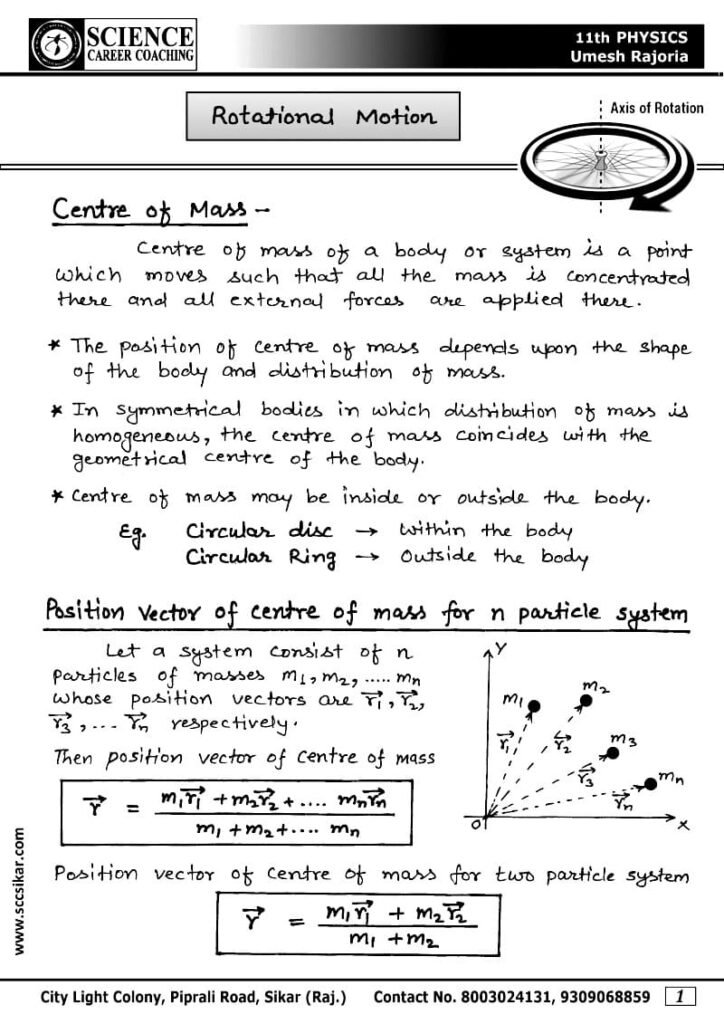 SCIENCE
CAREER COACHING
11th PHYSICS
Umesh Rajoria
Rotational Motion
Axis of Rotation
Centre of Mass -
Centre of mass of a body or system is a point
which moves such that all the mass is concentrated
there and all external forces are applied there.
* The position of centre of mass depends upon the shape
of the body and distribution of mass.
* In symmetrical bodies in which distribution of mass is
homogeneous, the centre of mass coincides with the
geometrical centre of the body.
* Centre of mass may be inside or outside the body.
Eg. Circular disc → Within the body
Circular Ring → Outside the body
Position Vector of centre of mass for n particle system
Let a system consist of n
particles of masses m₁, m₂, ..... mₙ
whose position vectors are r⃗₁, r⃗₂,
r⃗₃, ... r⃗ₙ respectively.
Then position vector of centre of mass
r⃗ = (m₁r⃗₁ + m₂r⃗₂ + .... mₙr⃗ₙ) / (m₁ + m₂ + .... mₙ)
Y
m₁
m₂
m₃
mₙ
r⃗₁
r⃗₂
r⃗₃
r⃗ₙ
O
X
Position vector of centre of mass for two particle system
r⃗ = (m₁r⃗₁ + m₂r⃗₂) / (m₁ + m₂)
www.sccsikar.com
City Light Colony, Piprali Road, Sikar (Raj.) Contact No. 8003024131, 9309068859 1